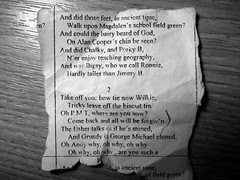 And did those feet, in ancient time,
Walk upon Magdalen's school field green?
And could the hairy beard of God,
On Alan Cooper's chin be seen?
And did Chalky, and Porky B,
N'er enjoy teaching geography,
And was Bigsy, who we call Ronnie,
Hardly taller than Jimmy B.
2
Take off you: bow tie now Wilkie,
Tricky leave off the biscuit tin.
Oh P M T, where are you now?
Come back and all will be forgiv'n
The Usher talks as if he's stoned,
And Grundy is George Michael cloned,
Oh Andy why, oh why, oh why
Oh why, oh why, are you such a
in ancient time,
of field green?